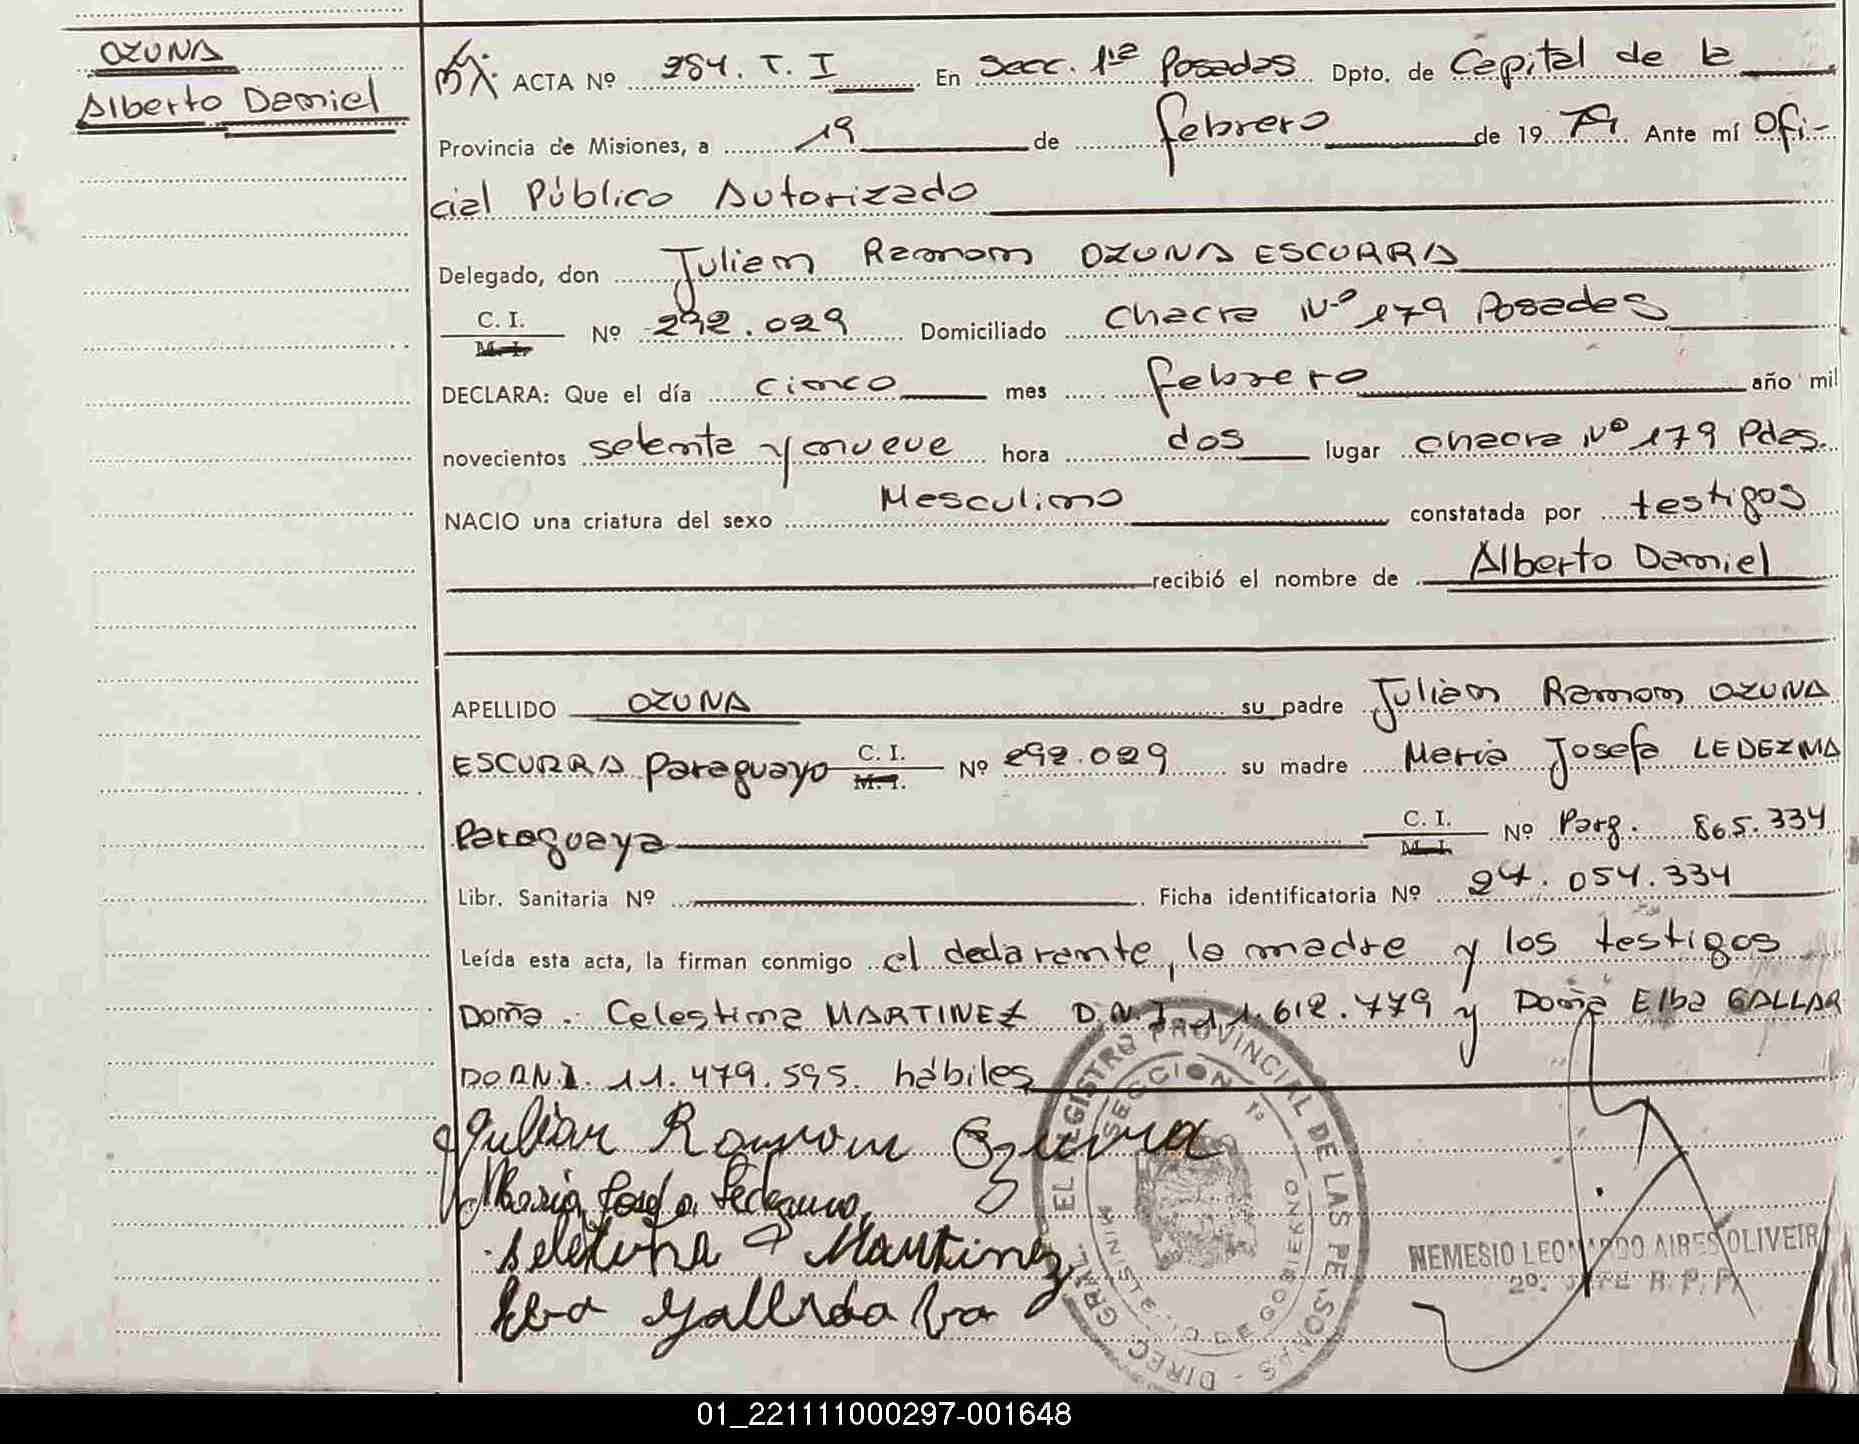 OZUNA
Alberto Daniel
ACTA Nº 284. T. I En Secc. 1ra Posadas Dpto. de Capital de la
Provincia de Misiones, a 19 de febrero de 1979 Ante mí Ofi-
cial Público Autorizado
Delegado, don Julian Ramon OZUNA ESCURRA
C. I.
M. I. Nº 292.029 Domiciliado Chacra Nº 179 Posadas
DECLARA: Que el día cinco mes febrero año mil
novecientos setenta y nueve hora dos lugar chacra Nº 179 Pdas.
NACIO una criatura del sexo Masculino constatada por testigos
recibió el nombre de Alberto Daniel
APELLIDO OZUNA su padre Julian Ramon OZUNA
ESCURRA Paraguayo C. I. M. I. Nº 292.029 su madre Maria Josefa LEDEZMA
Paraguaya C. I. M. I. Nº Parg. 865.334
Libr. Sanitaria Nº Ficha identificatoria Nº 27.054.334
Leída esta acta, la firman conmigo el declarante, la madre y los testigos
Doña. Celestina MARTINEZ D.N.I. 11.612.779 y Doña Elba GALLAR
DO DNI. 11.479.595. hábiles
Julian Ramon Ozuna
Maria Josefa Ledezma
Martinez
DIREC. GRAL. EL REGISTRO PROVINCIAL DE LAS PERSONAS
SECCION 1º
MINISTERIO DE GOBIERNO
NEMESIO LEONARDO AIRES OLIVEIR
2º. JEFE R. P. P.
01_221111000297-001648